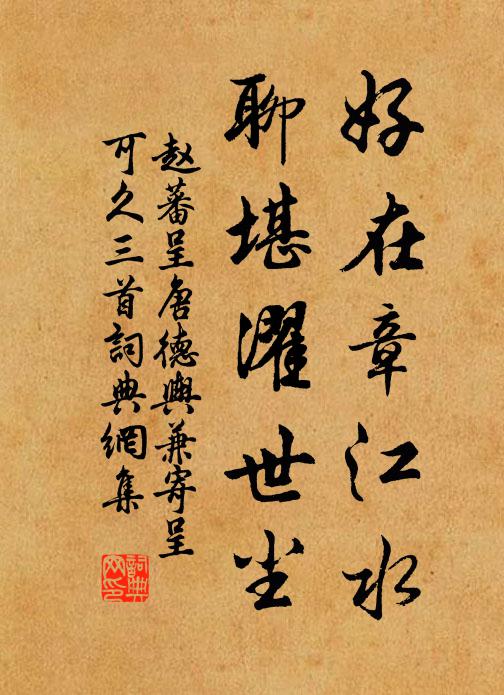 好在章江水
聊堪濯世尘
赵蕃呈唐德舆兼寄呈
可久三首詞典網集
詞典
网印